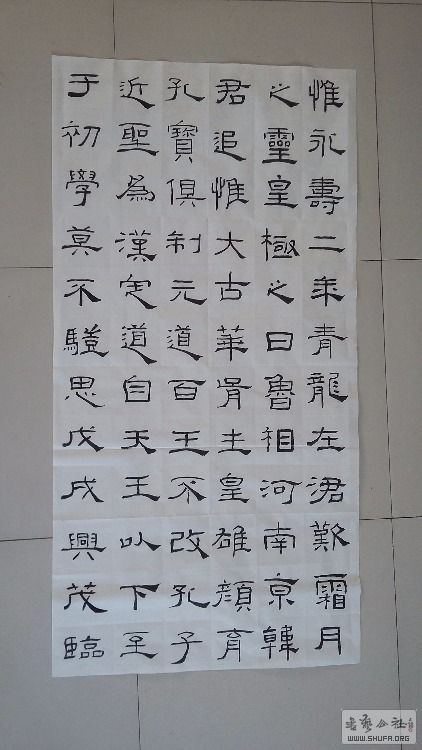 惟永壽二年青龍在涒歎霜月
之靈皇極之日魯相河南京韓
君追惟大古華胥生皇雄顏育
孔寶俱制元道百王不改孔子
近聖為漢定道自天王以下至
于初學莫不驥思戊戌興茂臨
書藝公社
WWW.SHUFA.ORG